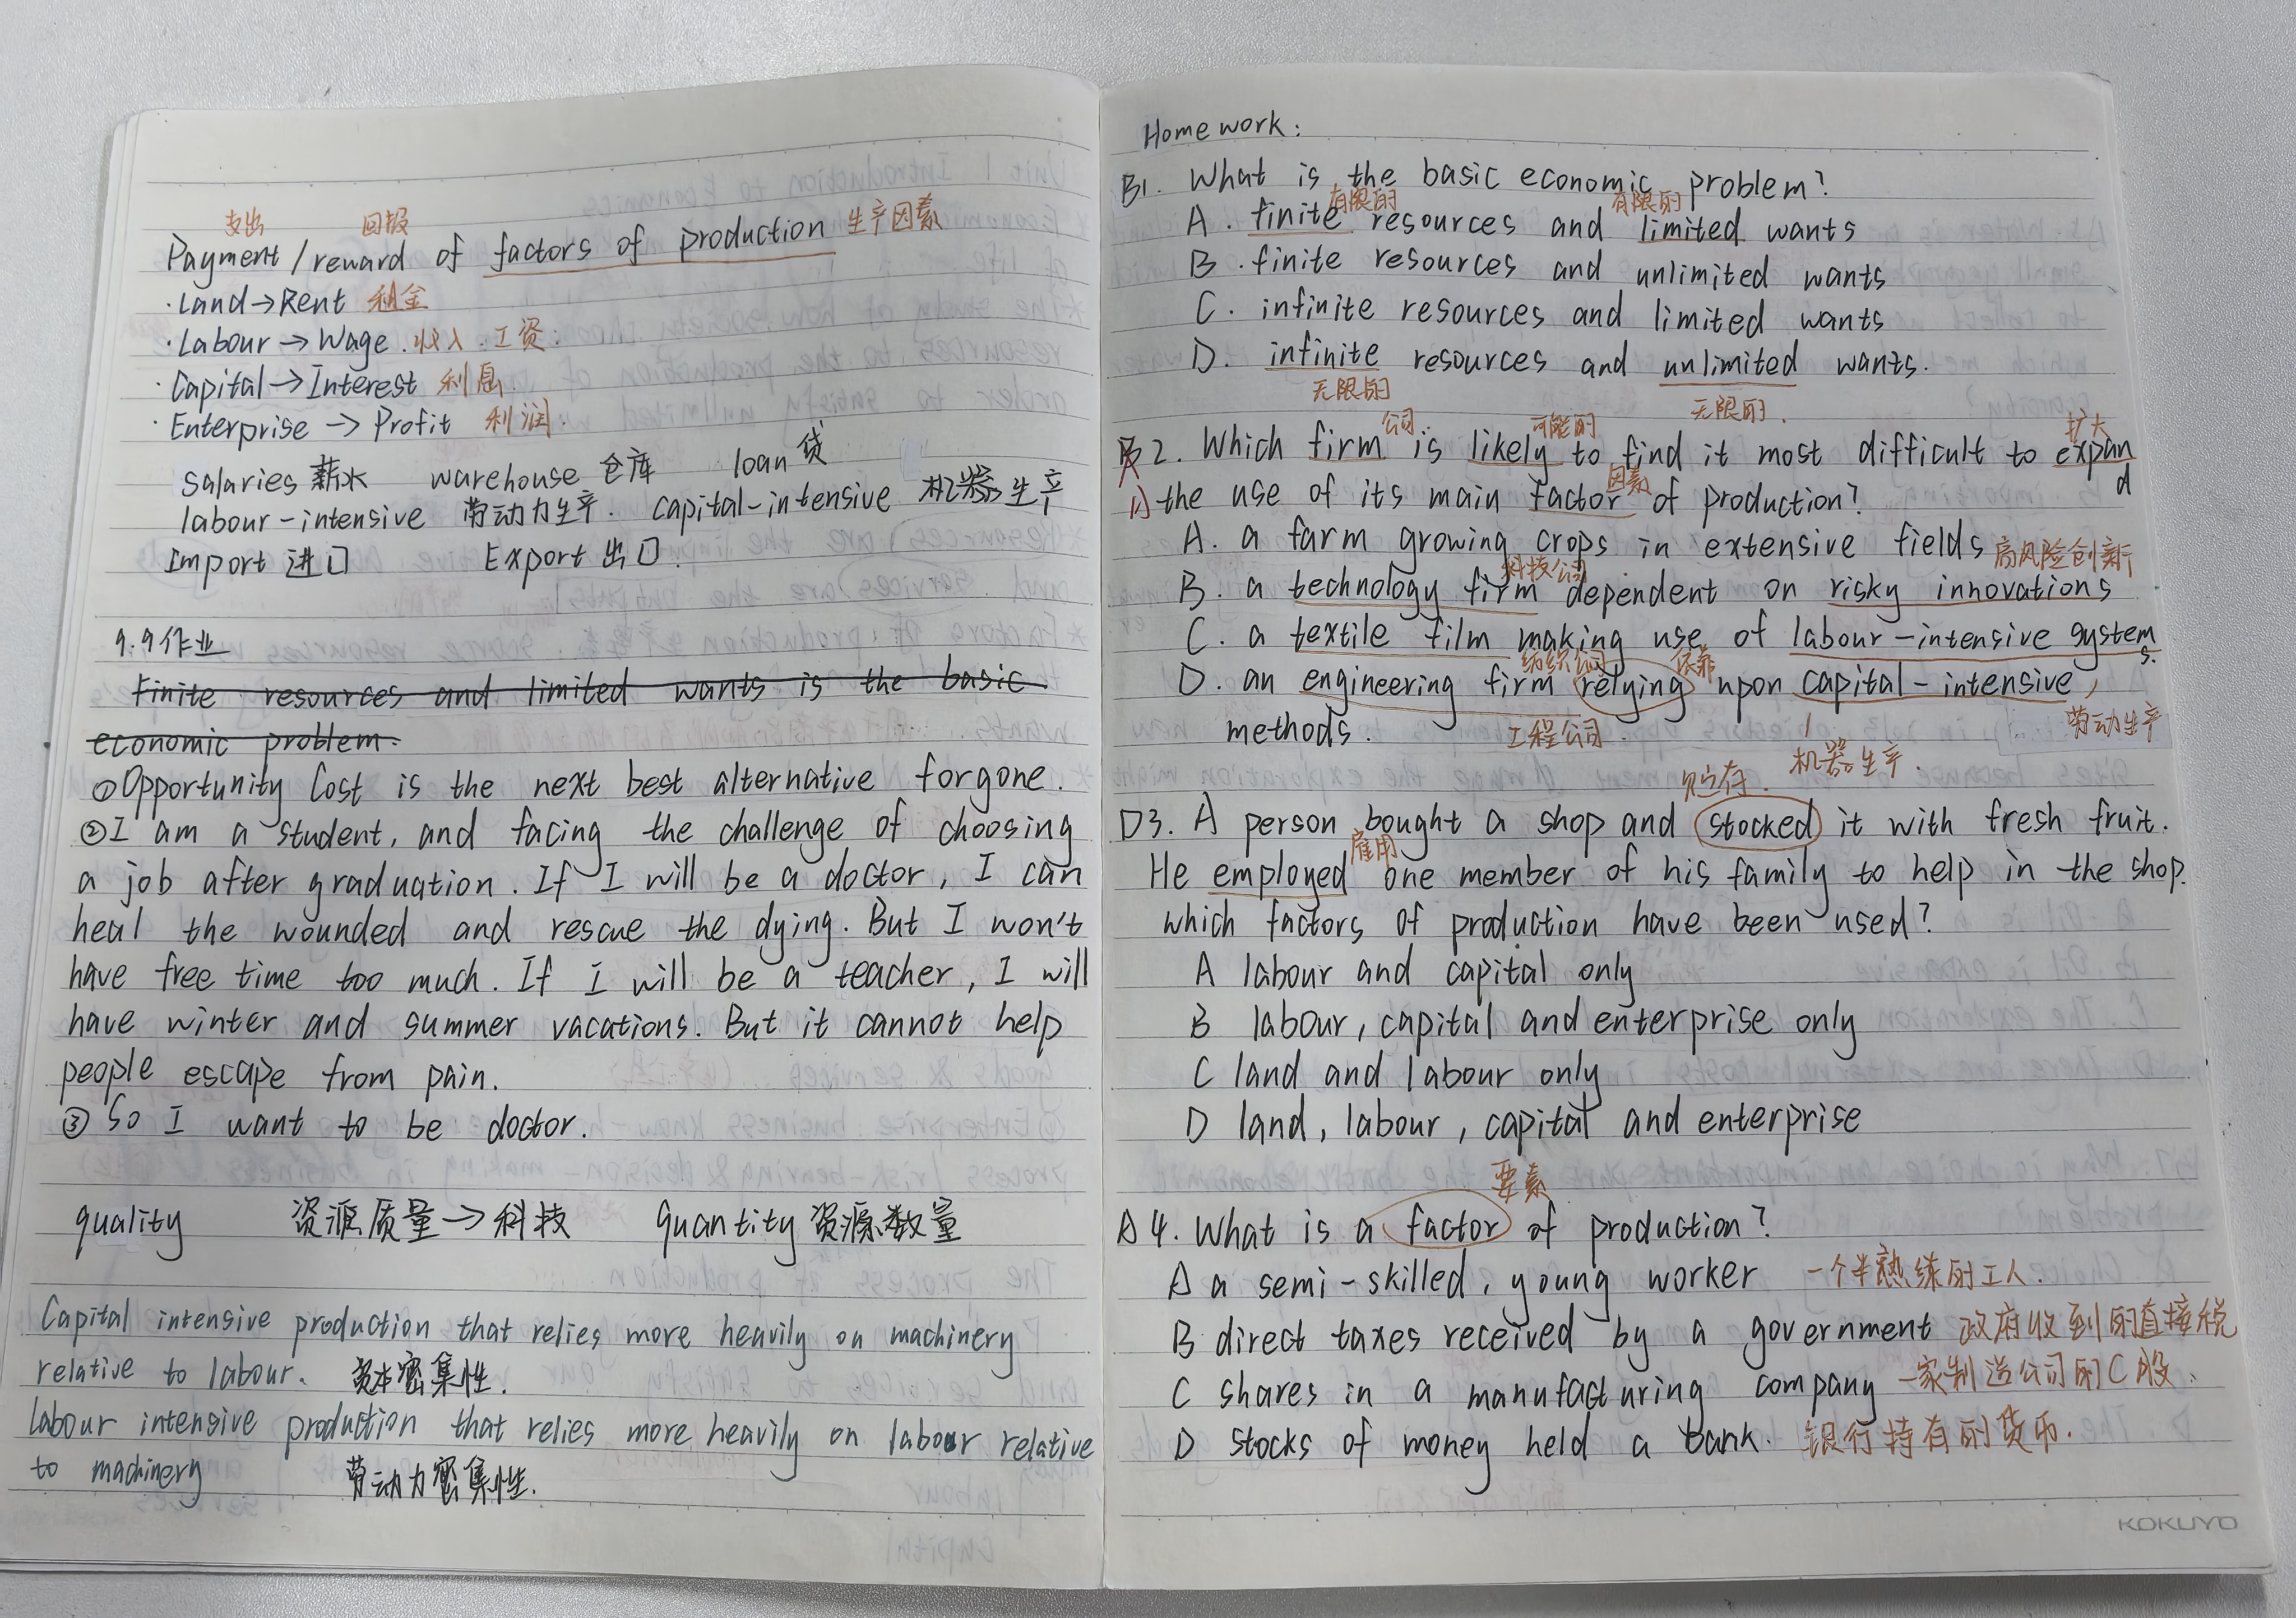 支出 回报
Payment / reward of factors of production 生产因素
·Land→Rent 租金
·Labour→Wage.收入.工资.
·Capital→Interest 利息.
·Enterprise→Profit 利润.
salaries 薪水 warehouse 仓库 loan 贷
labour-intensive 劳动力生产. capital-intensive 机器生产
Import 进口 Export 出口.
9.9作业
Finite resources and limited wants is the basic
economic problem.
①Opportunity Cost is the next best alternative forgone.
②I am a student, and facing the challenge of choosing
a job after graduation. If I will be a doctor, I can
heal the wounded and rescue the dying. But I won't
have free time too much. If I will be a teacher, I will
have winter and summer vacations. But it cannot help
people escape from pain.
③So I want to be doctor.
quality 资源质量→科技 quantity 资源数量
Capital intensive production that relies more heavily on machinery
relative to labour. 资本密集性.
labour intensive production that relies more heavily on labour relative
to machinery 劳动力密集性.
Homework:
B1. What is the basic economic problem?
有限的 有限的
A. finite resources and limited wants
B. finite resources and unlimited wants
C. infinite resources and limited wants
D. infinite resources and unlimited wants.
无限的 无限的.
公司 可能的 扩大
2. Which firm is likely to find it most difficult to expand
因素
A the use of its main factor of production?
A. a farm growing crops in extensive fields
科技公司 高风险创新
B. a technology firm dependent on risky innovations
C. a textile film making use of labour-intensive systems.
纺织公司 依靠
D. an engineering firm relying upon capital-intensive,
methods. 工程公司. 机器生产. 劳动生产
贮存.
D3. A person bought a shop and stocked it with fresh fruit.
雇用
He employed one member of his family to help in the shop.
which factors of production have been used?
A labour and capital only
B labour, capital and enterprise only
C land and labour only
D land, labour, capital and enterprise
要素
A4. What is a factor of production?
A a semi-skilled, young worker 一个半熟练的工人.
B direct taxes received by a government 政府收到的直接税
C shares in a manufacturing company 一家制造公司的C股.
D stocks of money held a bank. 银行持有的货币.
KOKUYO